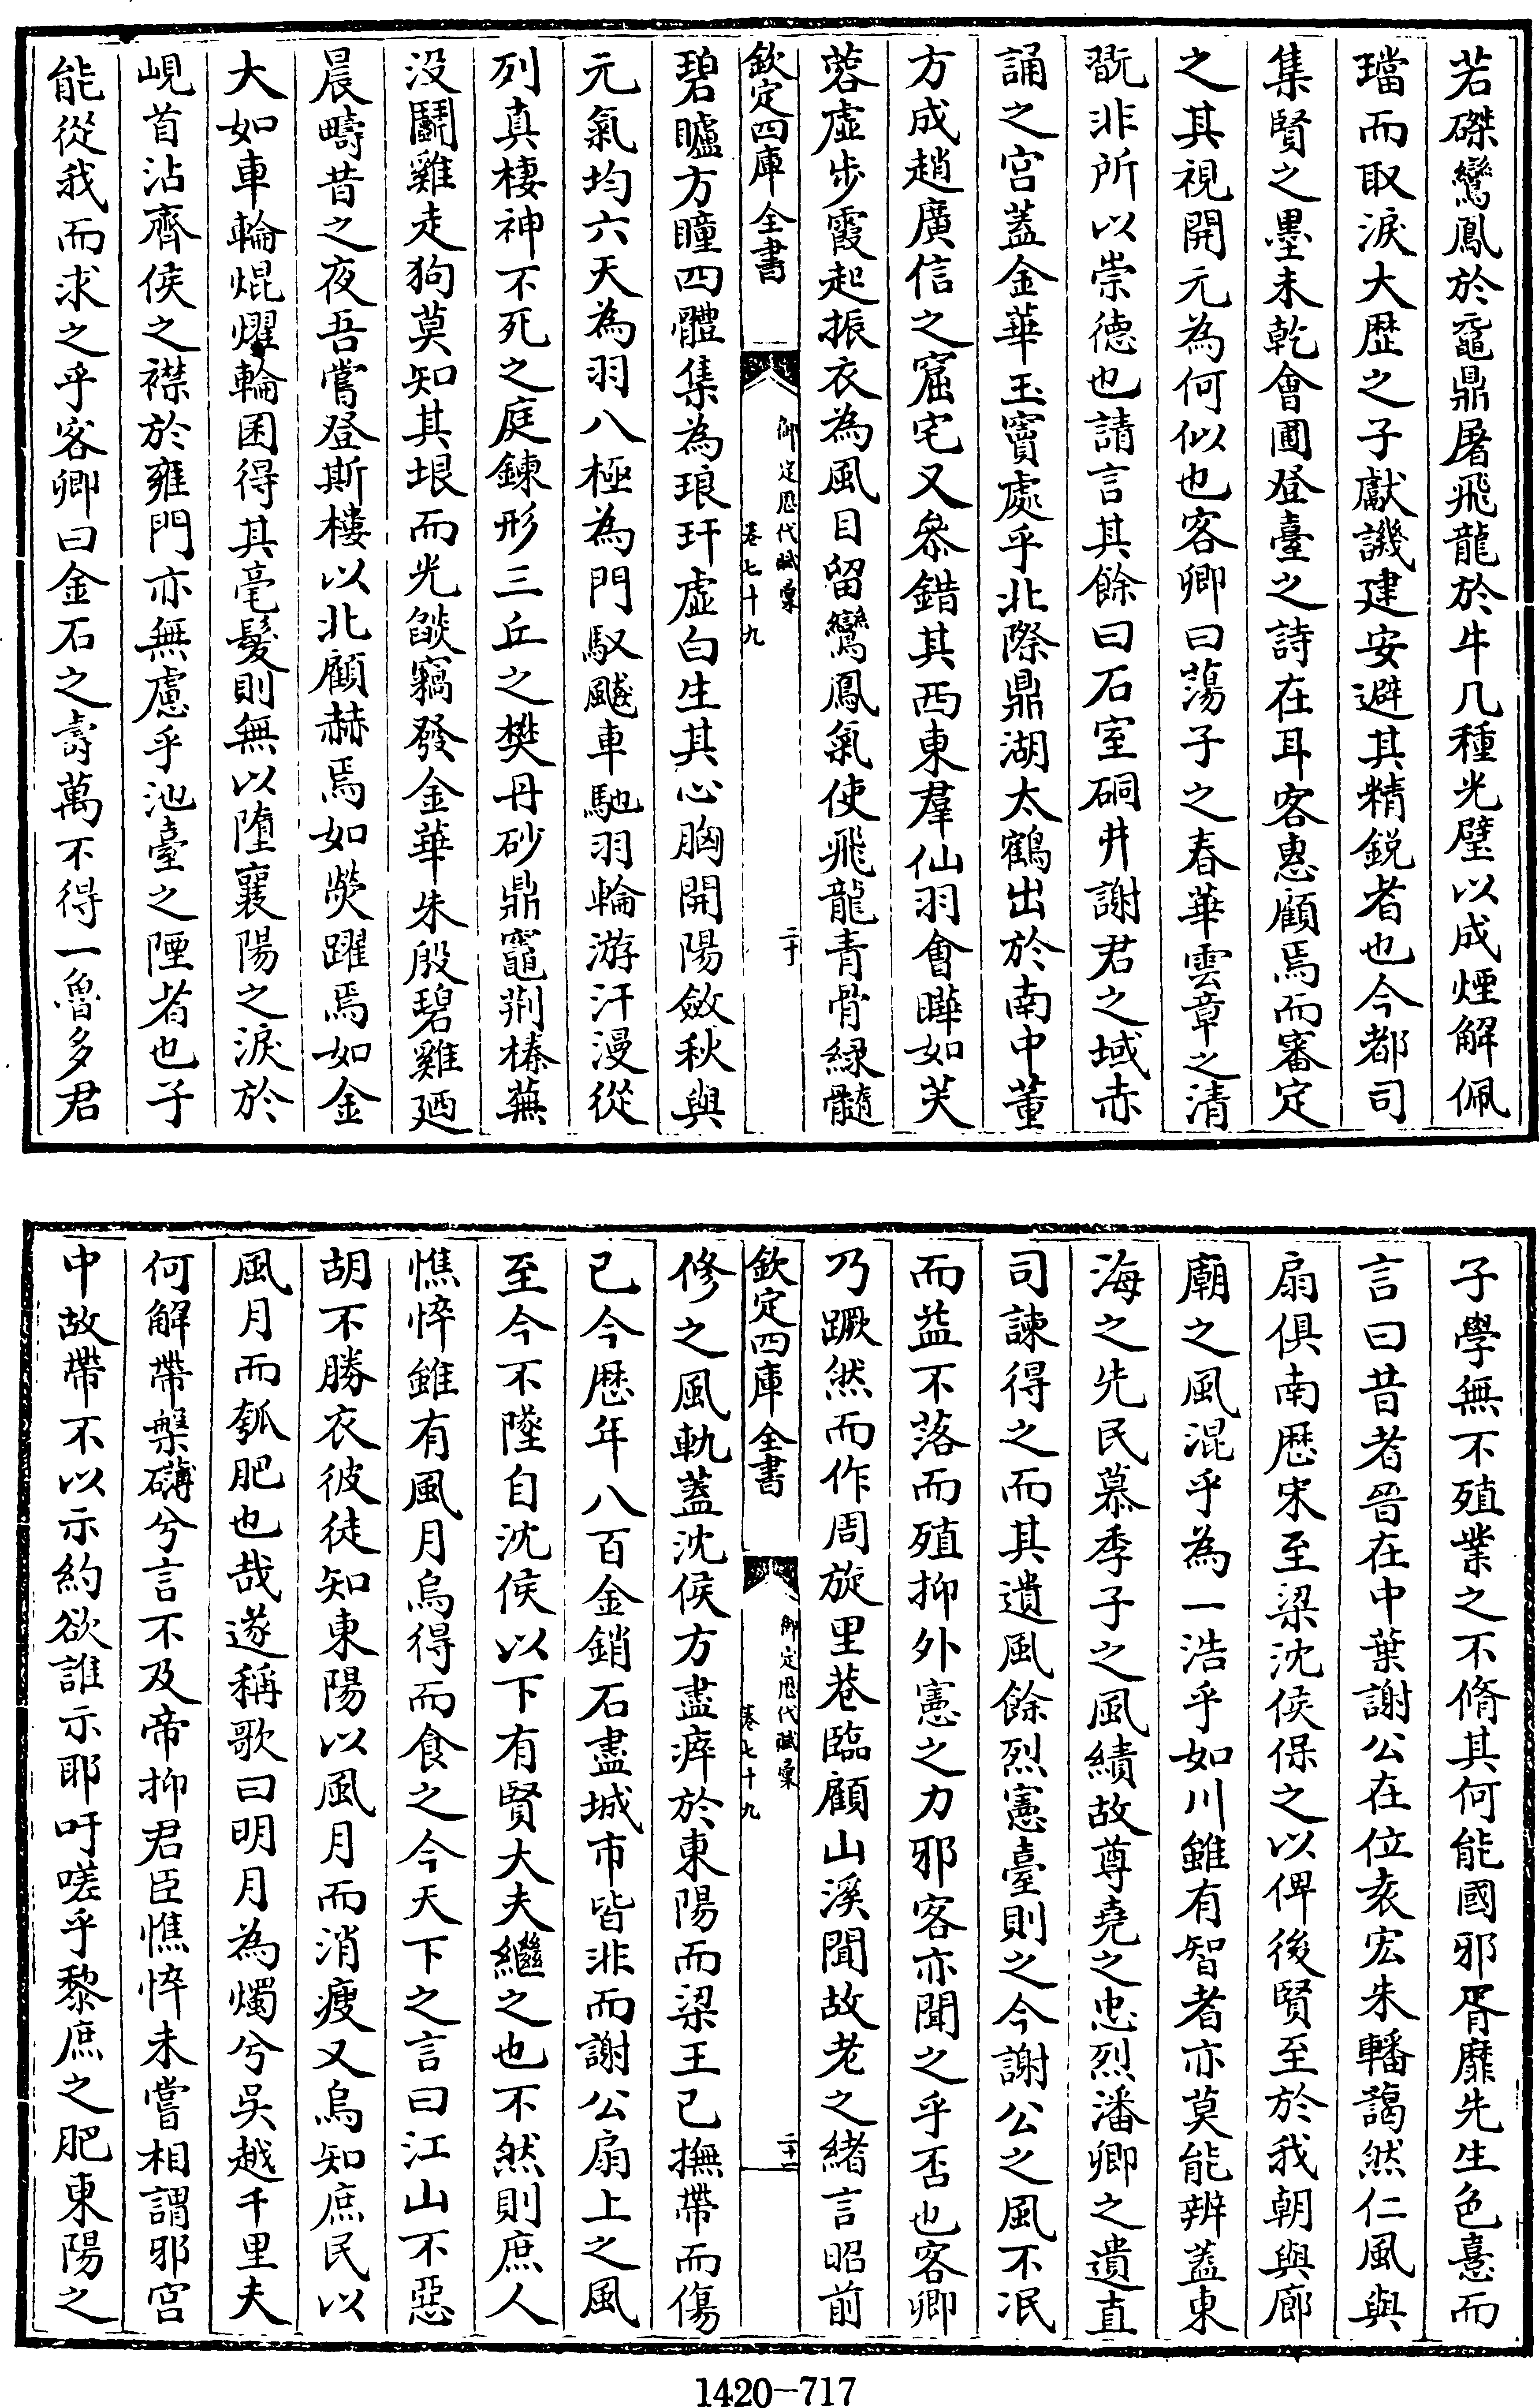 若磔鸞鳳於鼁鼎屠飛龍於牛几種光璧以成煙解佩
璫而取淚大歴之子獻譏建安避其精鋭者也今都司
集賢之墨未乾會圃登臺之詩在耳客惠顧焉而審定
之其視開元為何似也客卿曰蕩子之春華雲章之清
翫非所以崇德也請言其餘曰石室硐井謝君之域赤
誦之宫葢金華玉竇處乎北際鼎湖太鶴出於南中董
方成趙廣信之窟宅又叅錯其西東羣仙羽會曄如芙
蓉虚步霞起振衣為風目留鸞鳳氣使飛龍青骨緑髓
欽定四庫全書
御定歴代賦彙
卷七十九
二十
碧矑方瞳四體集為琅玕虚白生其心胸開陽斂秋與
元氣均六天為羽八極為門馭飈車馳羽輪游汗漫從
列真棲神不死之庭鍊形三丘之樊丹砂鼎竈荆榛蕪
没鬭雞走狗莫知其垠而光燄竊發金華朱殷碧雞廼
晨疇昔之夜吾嘗登斯樓以北顧赫焉如熒躍焉如金
大如車輪焜燿輪囷得其毫髪則無以墮襄陽之淚於
峴首沾齊侯之襟於雍門亦無慮乎池臺之陻者也子
能從我而求之乎客卿曰金石之壽萬不得一魯多君
子學無不殖業之不脩其何能國邪胥靡先生色憙而
言曰昔者晉在中葉謝公在位袁宏朱轓藹然仁風與
扇俱南歴宋至梁沈侯保之以俾後賢至於我朝與廊
廟之風混乎為一浩乎如川雖有智者亦莫能辨葢東
海之先民慕季子之風績故尊堯之忠烈潘卿之遺直
司諫得之而其遺風餘烈憲臺則之今謝公之風不泯
而益不落而殖抑外憲之力邪客亦聞之乎否也客卿
乃蹶然而作周旋里巷臨顧山溪聞故老之緒言昭前
欽定四庫全書
御定歴代賦彙
卷七十九
二十一
修之風軌葢沈侯方盡瘁於東陽而梁王已撫帶而傷
已今歴年八百金銷石盡城市皆非而謝公扇上之風
至今不墜自沈侯以下有賢大夫繼之也不然則庶人
憔悴雖有風月烏得而食之今天下之言曰江山不惡
胡不勝衣彼徒知東陽以風月而消瘦又烏知庶民以
風月而瓠肥也哉遂稱歌曰明月為燭兮吳越千里夫
何解帶槃礴兮言不及帝抑君臣憔悴未嘗相謂邪宫
中故帶不以示約欲誰示耶吁嗟乎黎庶之肥東陽之
1420—717